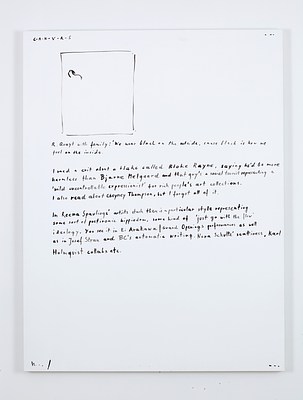 C-A-N-V-R-S
R. Booft with family! 'We wear black on the outside, cause black is how we
feel on the inside.
I read a crit about a bloke called Blake Rayne, saying he'd be more
harmless than Bjarne Melgaard and that guy's a social tourist representing a
'wild uncontrollable expressionist' for rich people's art collections.
I also read about Cheyney Thompson, but I forgot all of it.
In Reena Spaulings' artists club there is a particular style representing
some sort of post ironic hippiedom, some kind of 'just go with the flow'
ideology. You see it in E. Arakawa / Grand Openings performances as well
as in Josef Strau and BC's automatic writing. Nora Schultz' scantiness, Karl
Holmqvist collabs etc.